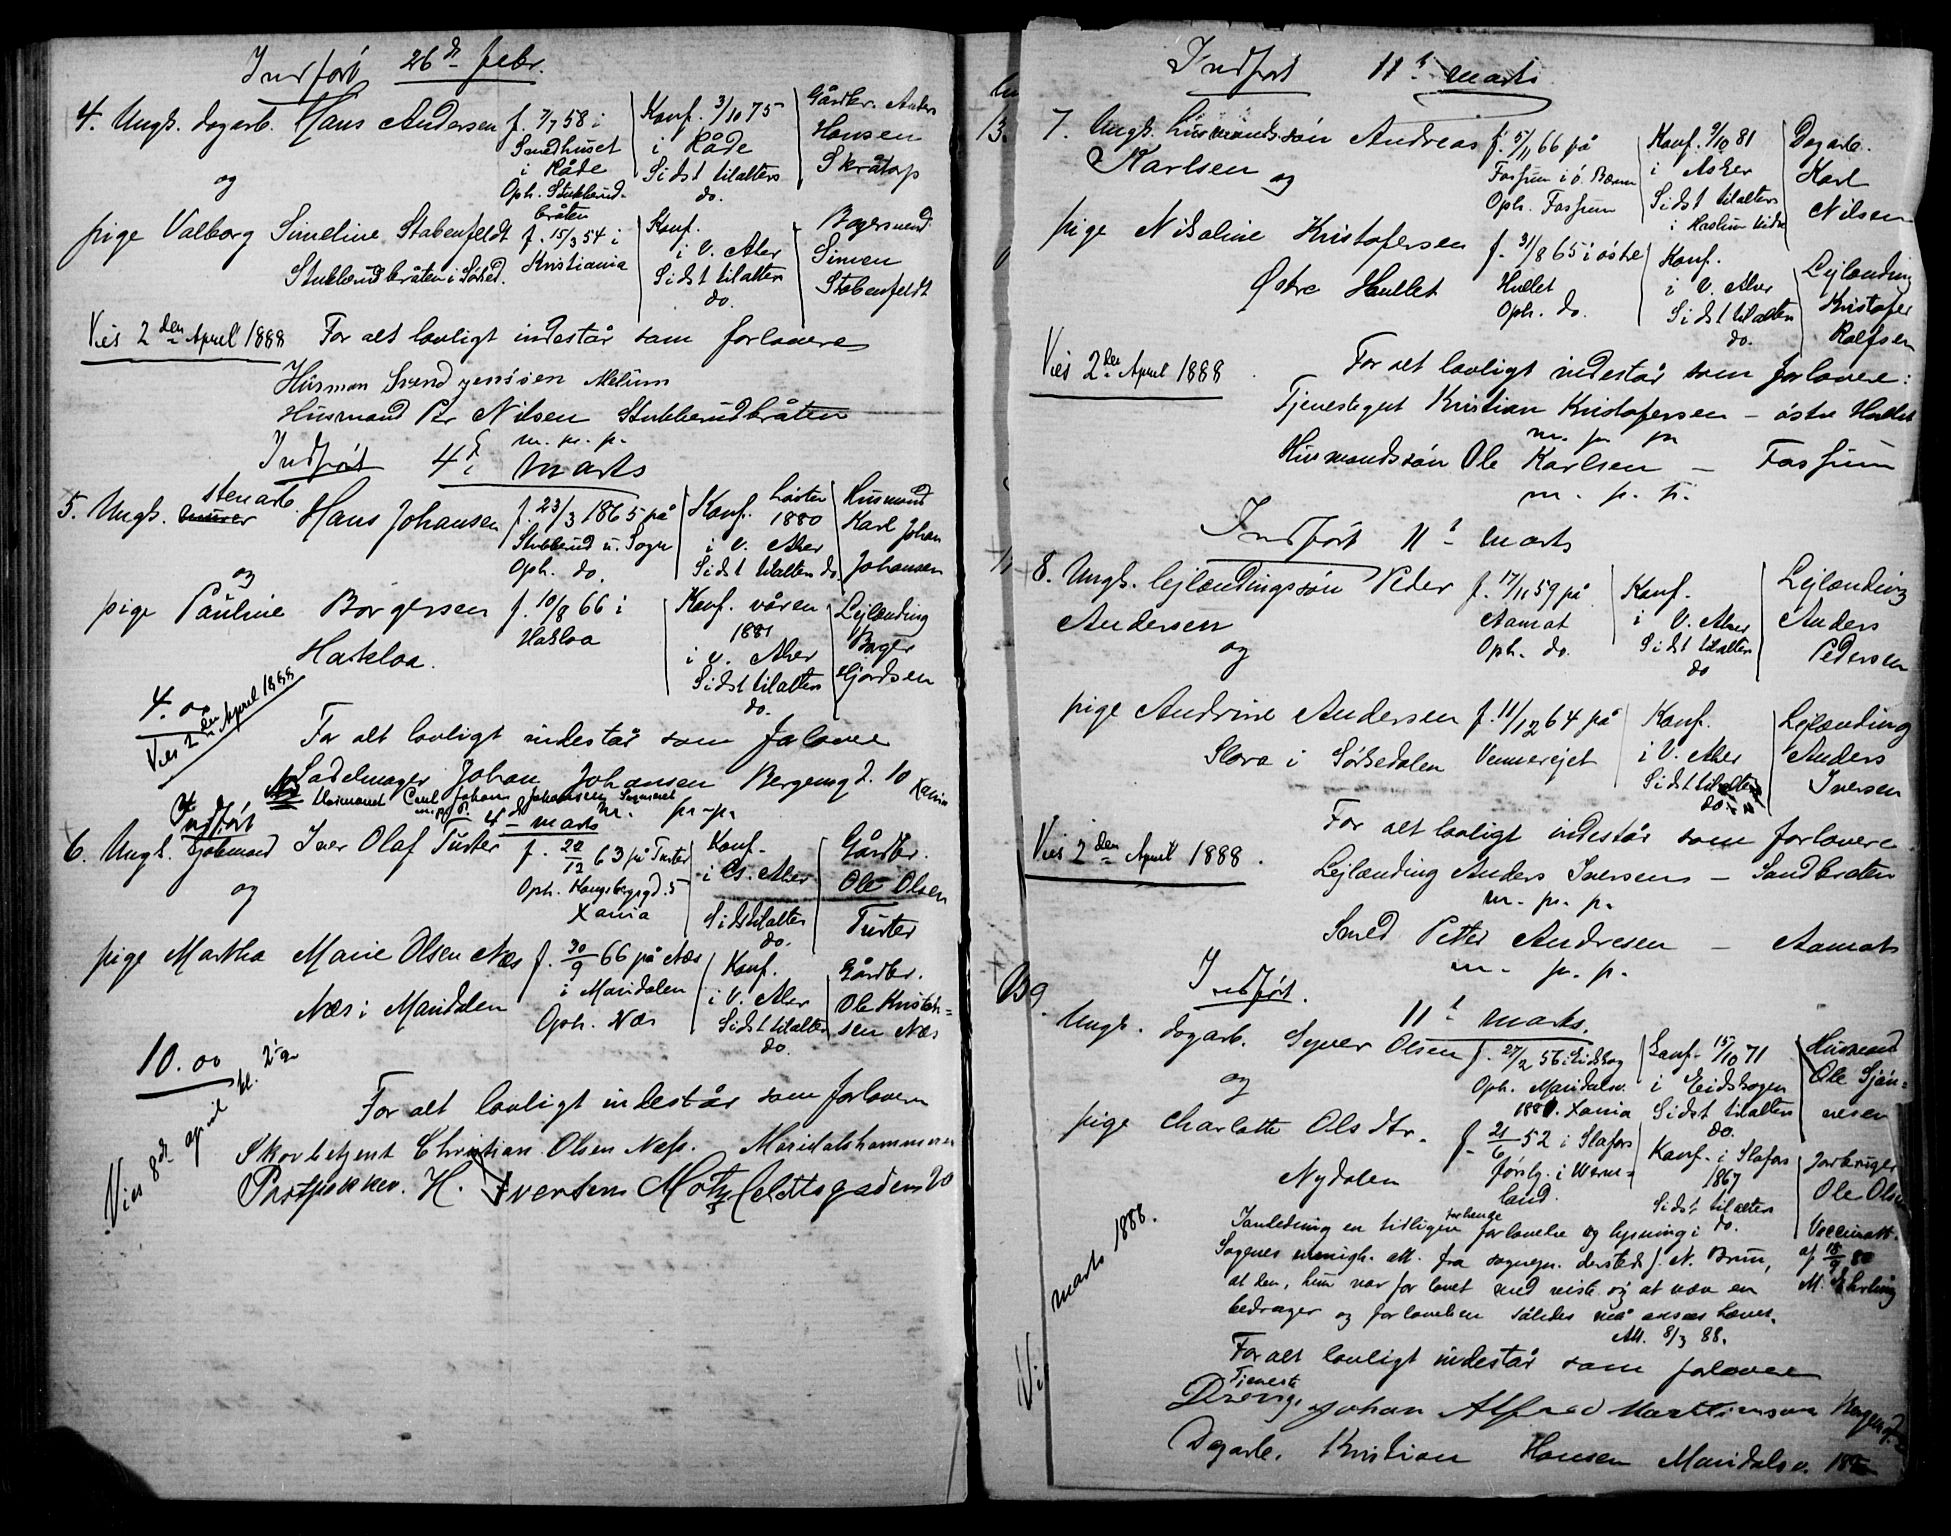 Indført 26de febr.
4. Ungk. dagarb. Hans Andersen f. 7/7 58 i Konf. 3/10 75 Gårdbr. Anders
Smedhuset i Råde Hansen
i Råde Sidst tilalters Skråtorp
og Oph. Stubberud- do.
bråten
pige Valborg Simeline Stabenfeldt f. 15/3 54 i Konf. Bogersvend
Stubberudbråten i Sørked. Kristiania i V. Aker Simen
Sidst tilalters Stabenfeldt
do.
Vies 2den April 1888 For alt lovligt indestår som forlovere
Husman Svend Jenssen Melum
Husmand Per Nilsen Stubberudbråten
m. p. p.
Indført 4de marts
stenarb.
5. Ungk. murer Hans Johansen f. 23/3 1865 på Konf. høsten Husmand
Stubberud u. Sogn 1880 Karl Johan
Oph. do. i V. Aker Johansen
Sidst tilalters do.
og
pige Pauline Borgersen f. 10/8 66 i Konf. våren Lejlænding
Hakloa. Hakloa 1881 Borger
i V. Aker Gjordsen
Sidst tilalters
do.
4.00
Vies 2den April 1888
For alt lovligt indestår som forlovere
Sadelmager Johan Johansen Bergensg. 10 Xania
m. p. p.
Husmand Carl Johan Johansen
Indført 4de marts
6. Ungk. Iver Olaf Turter f. 22/12 63 på Turter Konf. Gårdbr.
Oph. Kongsbergsgd. 5 i V. Aker Ole Olsen
og Xania Sidst tilalters Turter
do.
pige Martha Marie Olsen Næs f. 30/9 66 på Næs Konf. Gårdbr.
Næs i Maridalen i Maridalen i V. Aker Ole Kristen-
Oph. Næs Sidst tilalters sen Næs
do.
10.00
Vies 8de april kl. 2
For alt lovligt indestår som forlovere
Skovbetjent Christian Olsen Næss. Maridalshammeren
Postpakker. H. Iversen Motzfeldtsgaden 20
Indført 11te marts
7. Ungk. husmandssøn Andreas f. 5/11 66 på Konf. 9/10 81 Dagarb.
Karlsen Fossum i ø. Bærum i Asker Karl
og Oph. Fossum Sidst tilalters Nilsen
i Haslum kirke
pige Nikoline Kristofersen f. 31/8 65 i østre Konf. Lejlænding
Østre Hullet Hullet i V. Aker Kristofer
Oph. do. Sidst tilalters Rolfsen
do.
Vies 2den April 1888 For alt lovligt indestår som forlovere:
Tjenestegut Kristian Kristofersen – østre Hullet
m. p. p.
Husmandssøn Ole Karlsen – Fossum
m. p. p.
Indført 11te marts
8. Ungk. lejlændingssøn Peder f. 17/11 59 på Konf. Lejlænding
Andersen Aamot i V. Aker Anders
og Oph. do. Sidst tilalters Pedersen
do
pige Andrine Andersen f. 11/12 64 på Konf. Lejlænding
Slora i Sørkedalen i V. Aker Anders
Sidst tilalters Iversen
do.
Vies 2den April 1888. For alt lovligt indestår som forlovere
Lejlænding Anders Iversen – Sandbråten
m. p. p.
Smed Petter Andresen – Aamot
m. p. p.
Indført.
9. 11te marts.
Ungk. dagarb. Syver Olsen f. 27/2 56 i Eidskog Konf. 15/10 71 Husmand
og Oph. Maridalsv. i Eidskogen Ole
Xania Sidst tilalters
do.
pige Charlotte Olsdtr. f. 21/6 52 i Konf. i Jordbruger
Nydalen i Werm- 1867 Ole Olsen
land. Sidst tilalters
do.
I anledning en tidligere forlovelse og lysning i Vaccinatt.
Sagenes menigh. att. fra sognepr. dersteds J. N. Brun, af 18/9 80
at den, hun var forlovet med viste sig at være en M. Ehrling
bedrager og forlovelsen således må ansees hævet.
Att. 8/3 88.
Vi marts 1888.
For alt lovligt indestår som forlovere
Tjeneste
Dreng. Johan Alfred Marthinsen
Dagarb. Kristian Hansen Maridalsv.